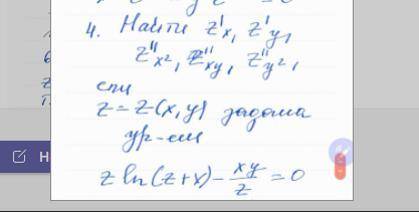 4. Найти z'x, z'y,
z''x², z''xy, z''y²,
если
z = z(x,y) задана
ур-ем
z ln(z+x) - xy/z = 0